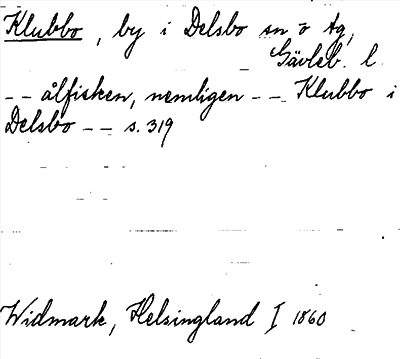 Klubbo, by i Delsbo sn o tg,
Gävleb. l.
-- ålfisken, nemligen -- Klubbo i
Delsbo -- s. 319
Widmark, Helsingland I 1860